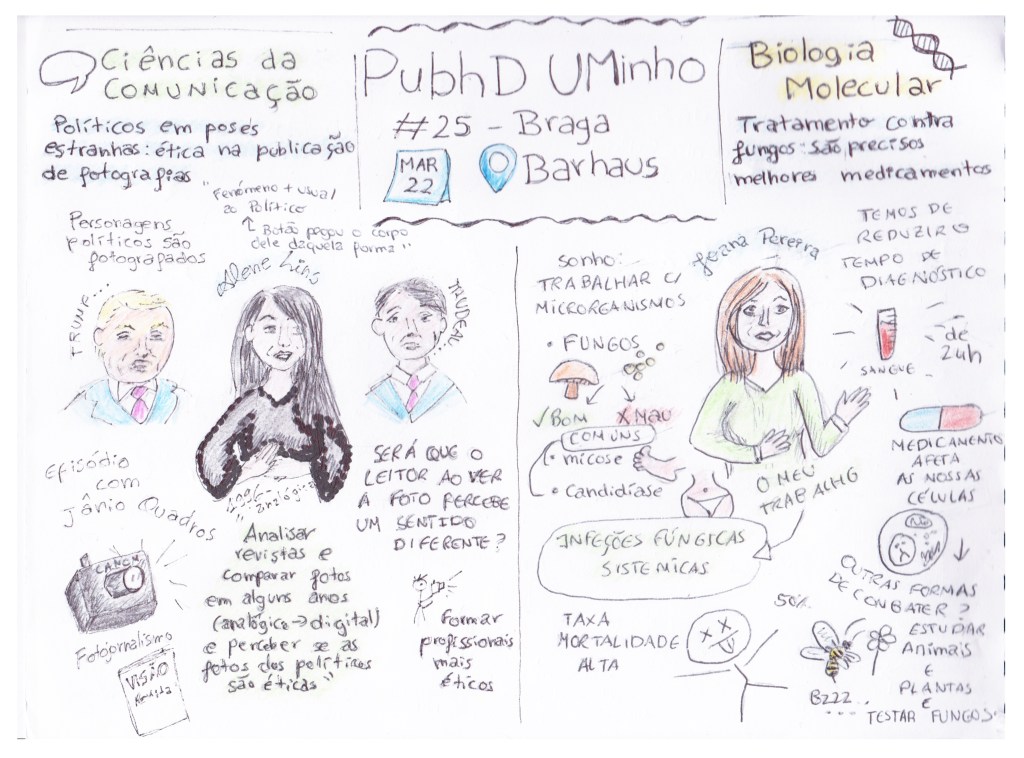 Ciências da
COMUNICAÇÃO
Políticos em poses
estranhas: ética na publicação
de fotografias
PubhD UMinho
#25 - Braga
MAR
22
Barhaus
Biologia
Molecular
Tratamento contra
fungos: são precisos
melhores medicamentos
"Fenómeno + usual
ao Político
↑ Botão pegou o corpo
dele daquela forma"
Personagens
políticos são
fotografados
Alene Lins
TRUMP...
TRUDEAU...
Episódio
com
Jânio Quadros
CANON
Fotojornalismo
VISÃO
Revista
"Analisar
revistas e
comparar fotos
em alguns anos
(analógico → digital)
e perceber se as
fotos dos políticos
são éticas"
SERÁ QUE O
LEITOR AO VER
A FOTO PERCEBE
UM SENTIDO
DIFERENTE?
Formar
profissionais
mais
éticos
Joana Pereira
SONHO:
TRABALHAR C/
MICRORGANISMOS
• FUNGOS
✓BOM
X MAU
COMUNS
• micose
• candidíase
O MEU
TRABALHO
INFEÇÕES FÚNGICAS
SISTEMICAS
TAXA
MORTALIDADE
ALTA
50%
TEMOS DE
REDUZIR O
TEMPO DE
DIAGNÓSTICO
SANGUE
de
24h
MEDICAMENTO
AFETA
AS NOSSAS
CÉLULAS
OUTRAS FORMAS
DE COMBATER?
ESTUDAR
Animais
E
PLANTAS
E
TESTAR FUNGOS.
BZZZ...